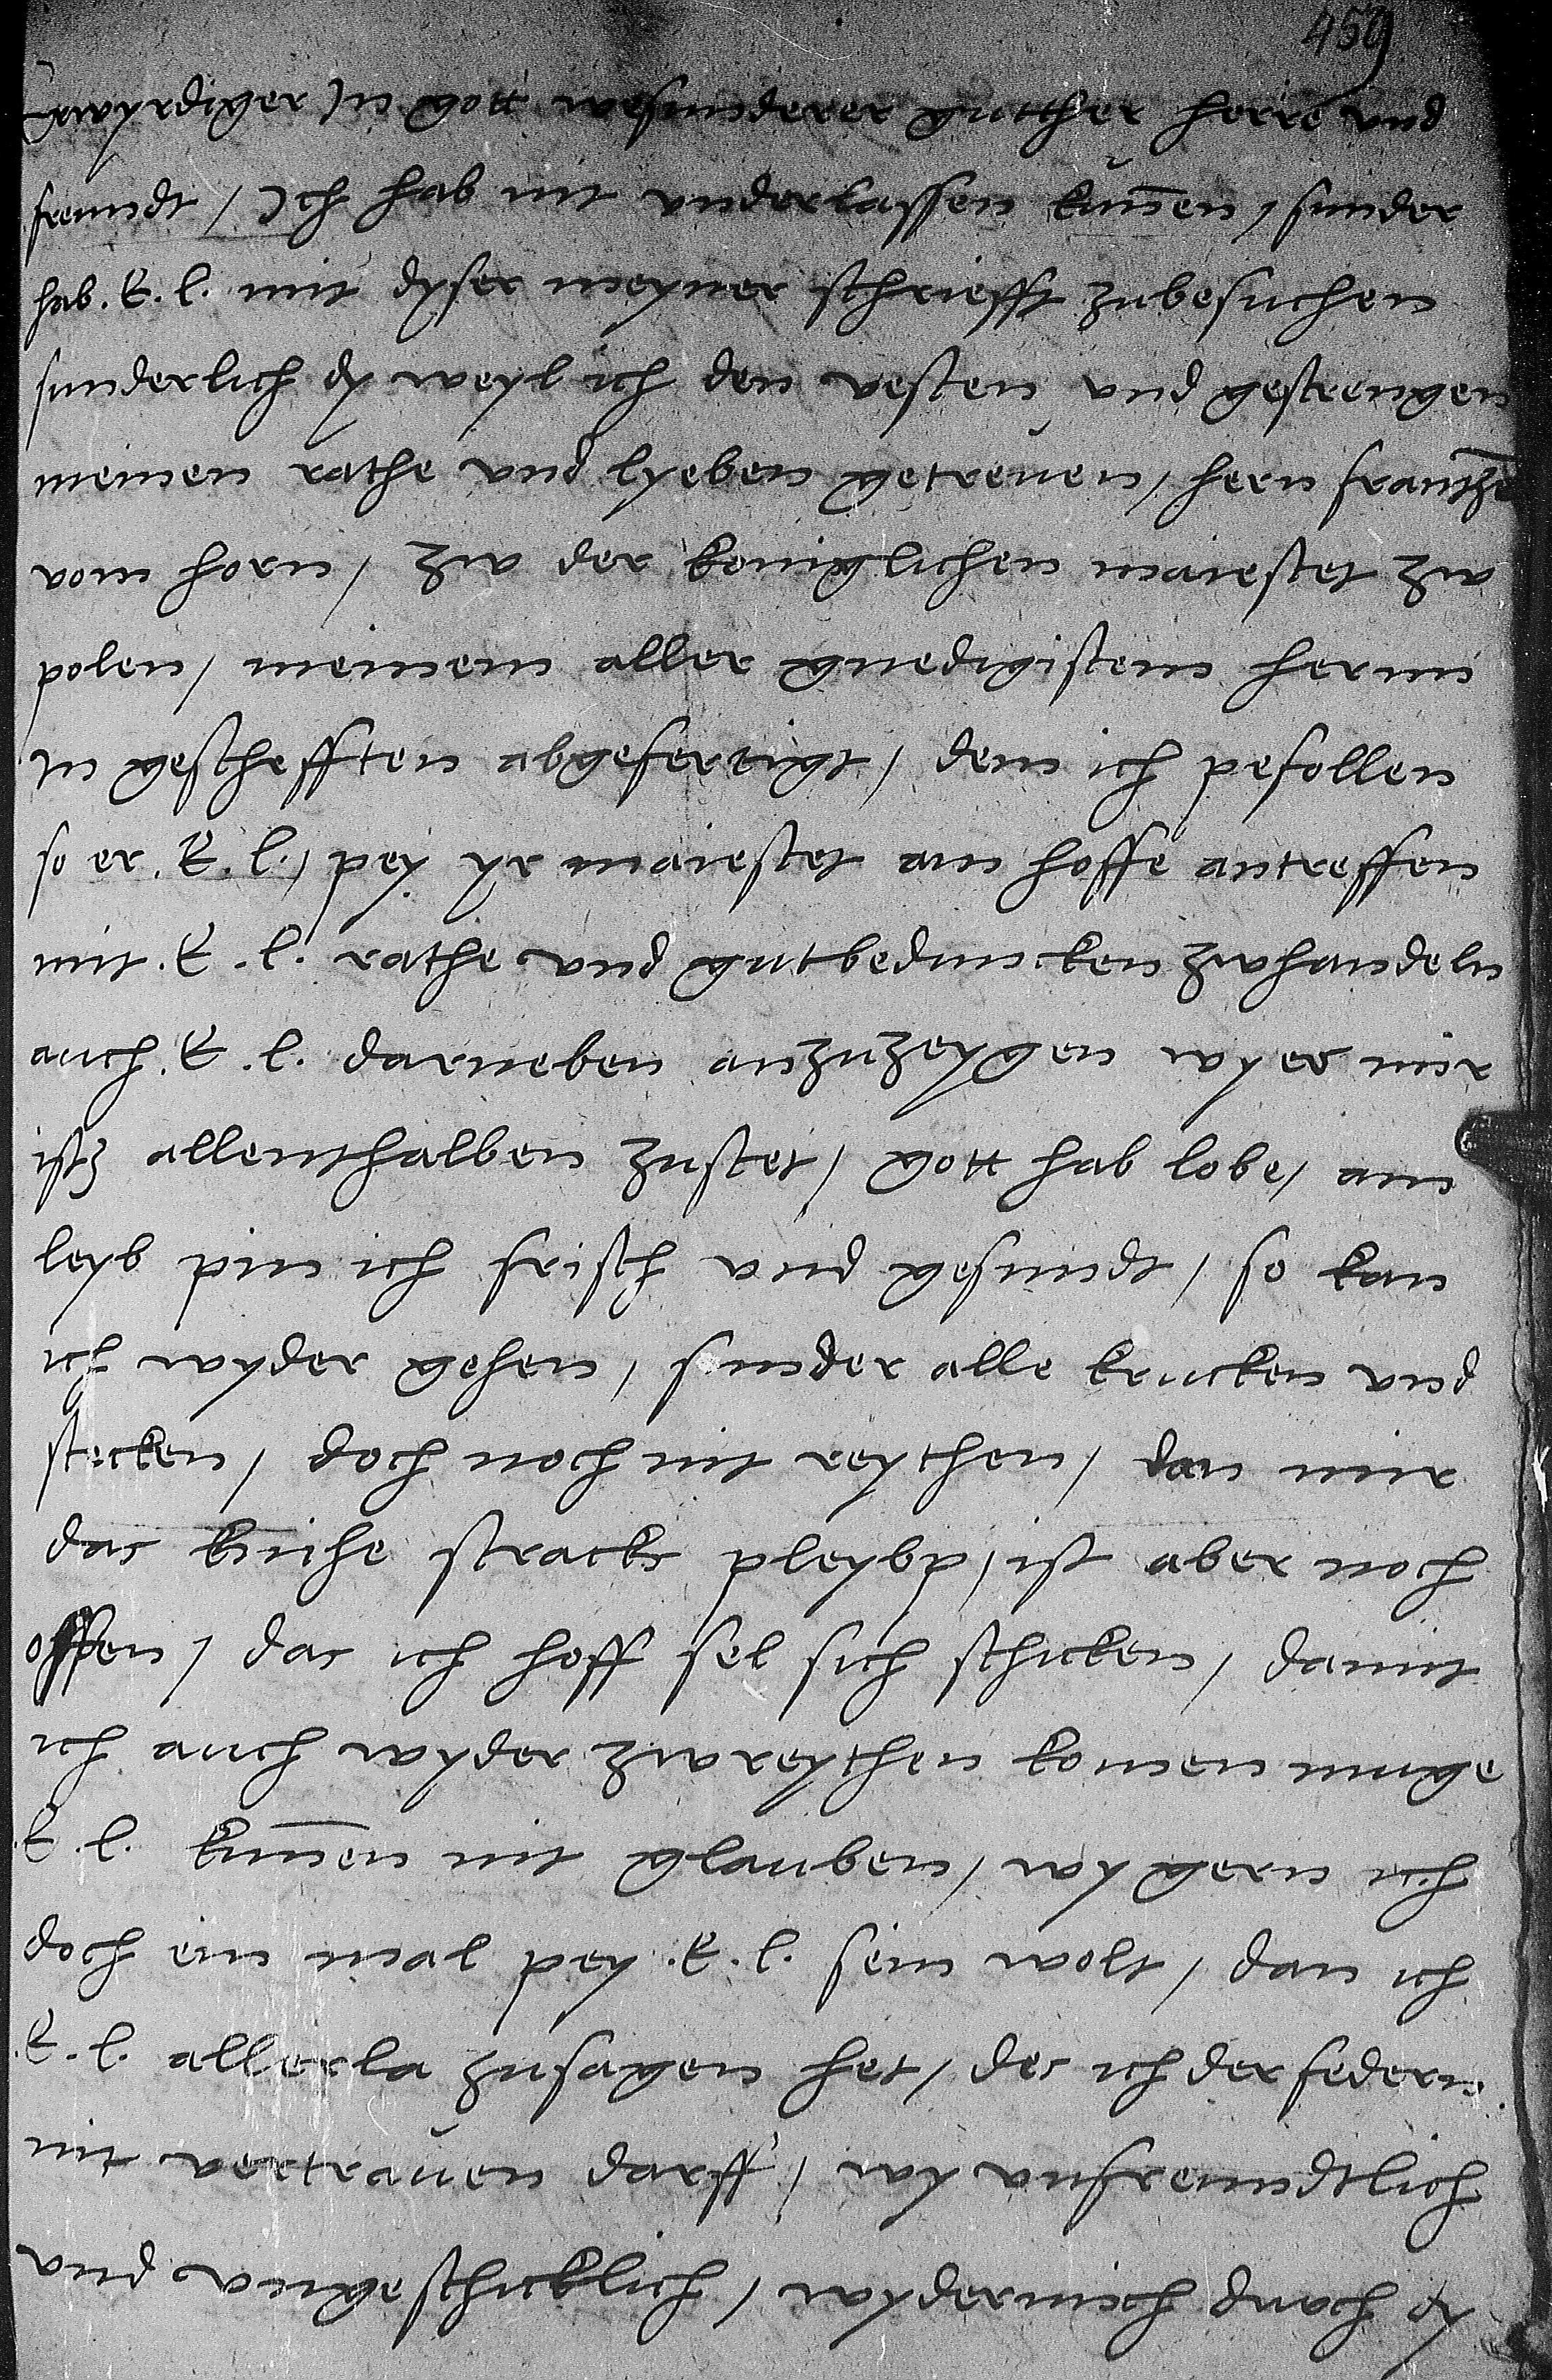 459
Erwyrdiger In gott wesunderer gutther herre und
freundt / Ich hab nit underlassen kunen / sunder
hab. E. l. mit dyser meyner schriefft zubesuchen
sunderlich dy weyl ich den vesten und gestrengen
meinen rathe und lyeben getreuen / hern frantze
vom horn / zw der koniglichen maiestet zw
polen / meinem aller gnedigistem hernn
In geschefften abgefertigt / dem ich pefollen
so er. E. l. / pey yr maiestet am hoffe antreffen
mit. E. l. rathe und gutbeduncken zwhandeln
auch. E. l. darneben anzuzeygen wyes mir
itz allenthalben zustet / gott hab lobe / am
leyb pin ich frisch und gesundt / so kan
ich wyder gehen / sunder alle krucken und
stecken / doch noch nit reythen / dan mir
das knihe stracks pleybd / ist aber noch
offen / das ich hoff sol sich schicken / damit
ich auch wyder zwreythen konnen muge
E. l. kunen nit glauben / wy gern ich
doch ein mal pey. E. l. sein wolt / dan ich
E. l. allerla zusagen het / des ich der federn
nit vertrauen darff / wy unfreundtlich
und ungeschicklich / wyder mich handt dy